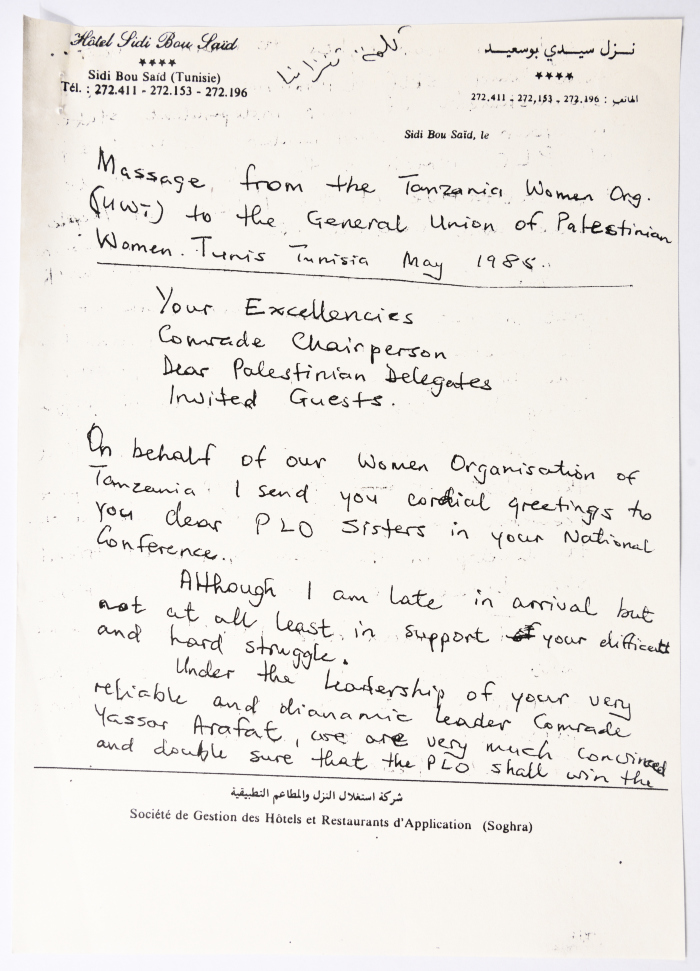 Hôtel Sidi Bou Saïd
★★★★
Sidi Bou Saïd (Tunisie)
Tél. : 272.411 - 272.153 - 272.196
كلمة تنزانيا
نـزل سيـدي بوسعيـد
★★★★
الهاتف : 272.196 - 272,153 - 272.411
Sidi Bou Saïd, le
Massage from the Tanzania Women Org.
(UWT) to the General Union of Palestinian
Women. Tunis Tunisia May 1985.
Your Excellencies
Comrade Chairperson
Dear Palestinian Delegates
Invited Guests.
On behalf of our Women Organisation of
Tanzania I send you cordial greetings to
you dear PLO Sisters in your National
Conference.
Although I am late in arrival but
not at all least in support of your difficult
and hard struggle.
Under the leadership of your very
reliable and dianamic leader Comrade
Yassor Arafat, we are very much convinced
and double sure that the PLO shall win the
شركة استغلال النزل والمطاعم التطبيقية
Société de Gestion des Hôtels et Restaurants d'Application (Soghra)